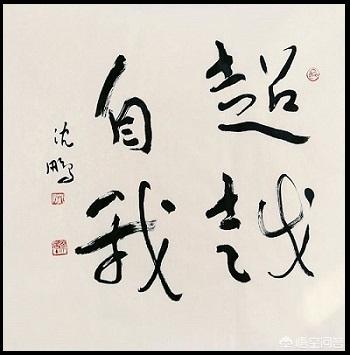 超越
自我
沈鹏
悟空问答